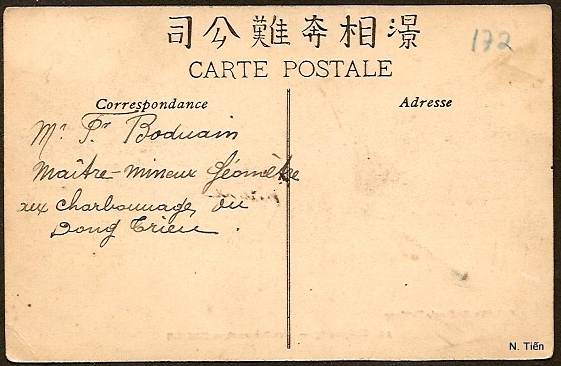 司公難奔相澋
172
CARTE POSTALE
Correspondance
Adresse
Mr Pr Boduain
Maître-mineur Géomètre
aux charbonnages du
Dong Trieu.
N. Tiến